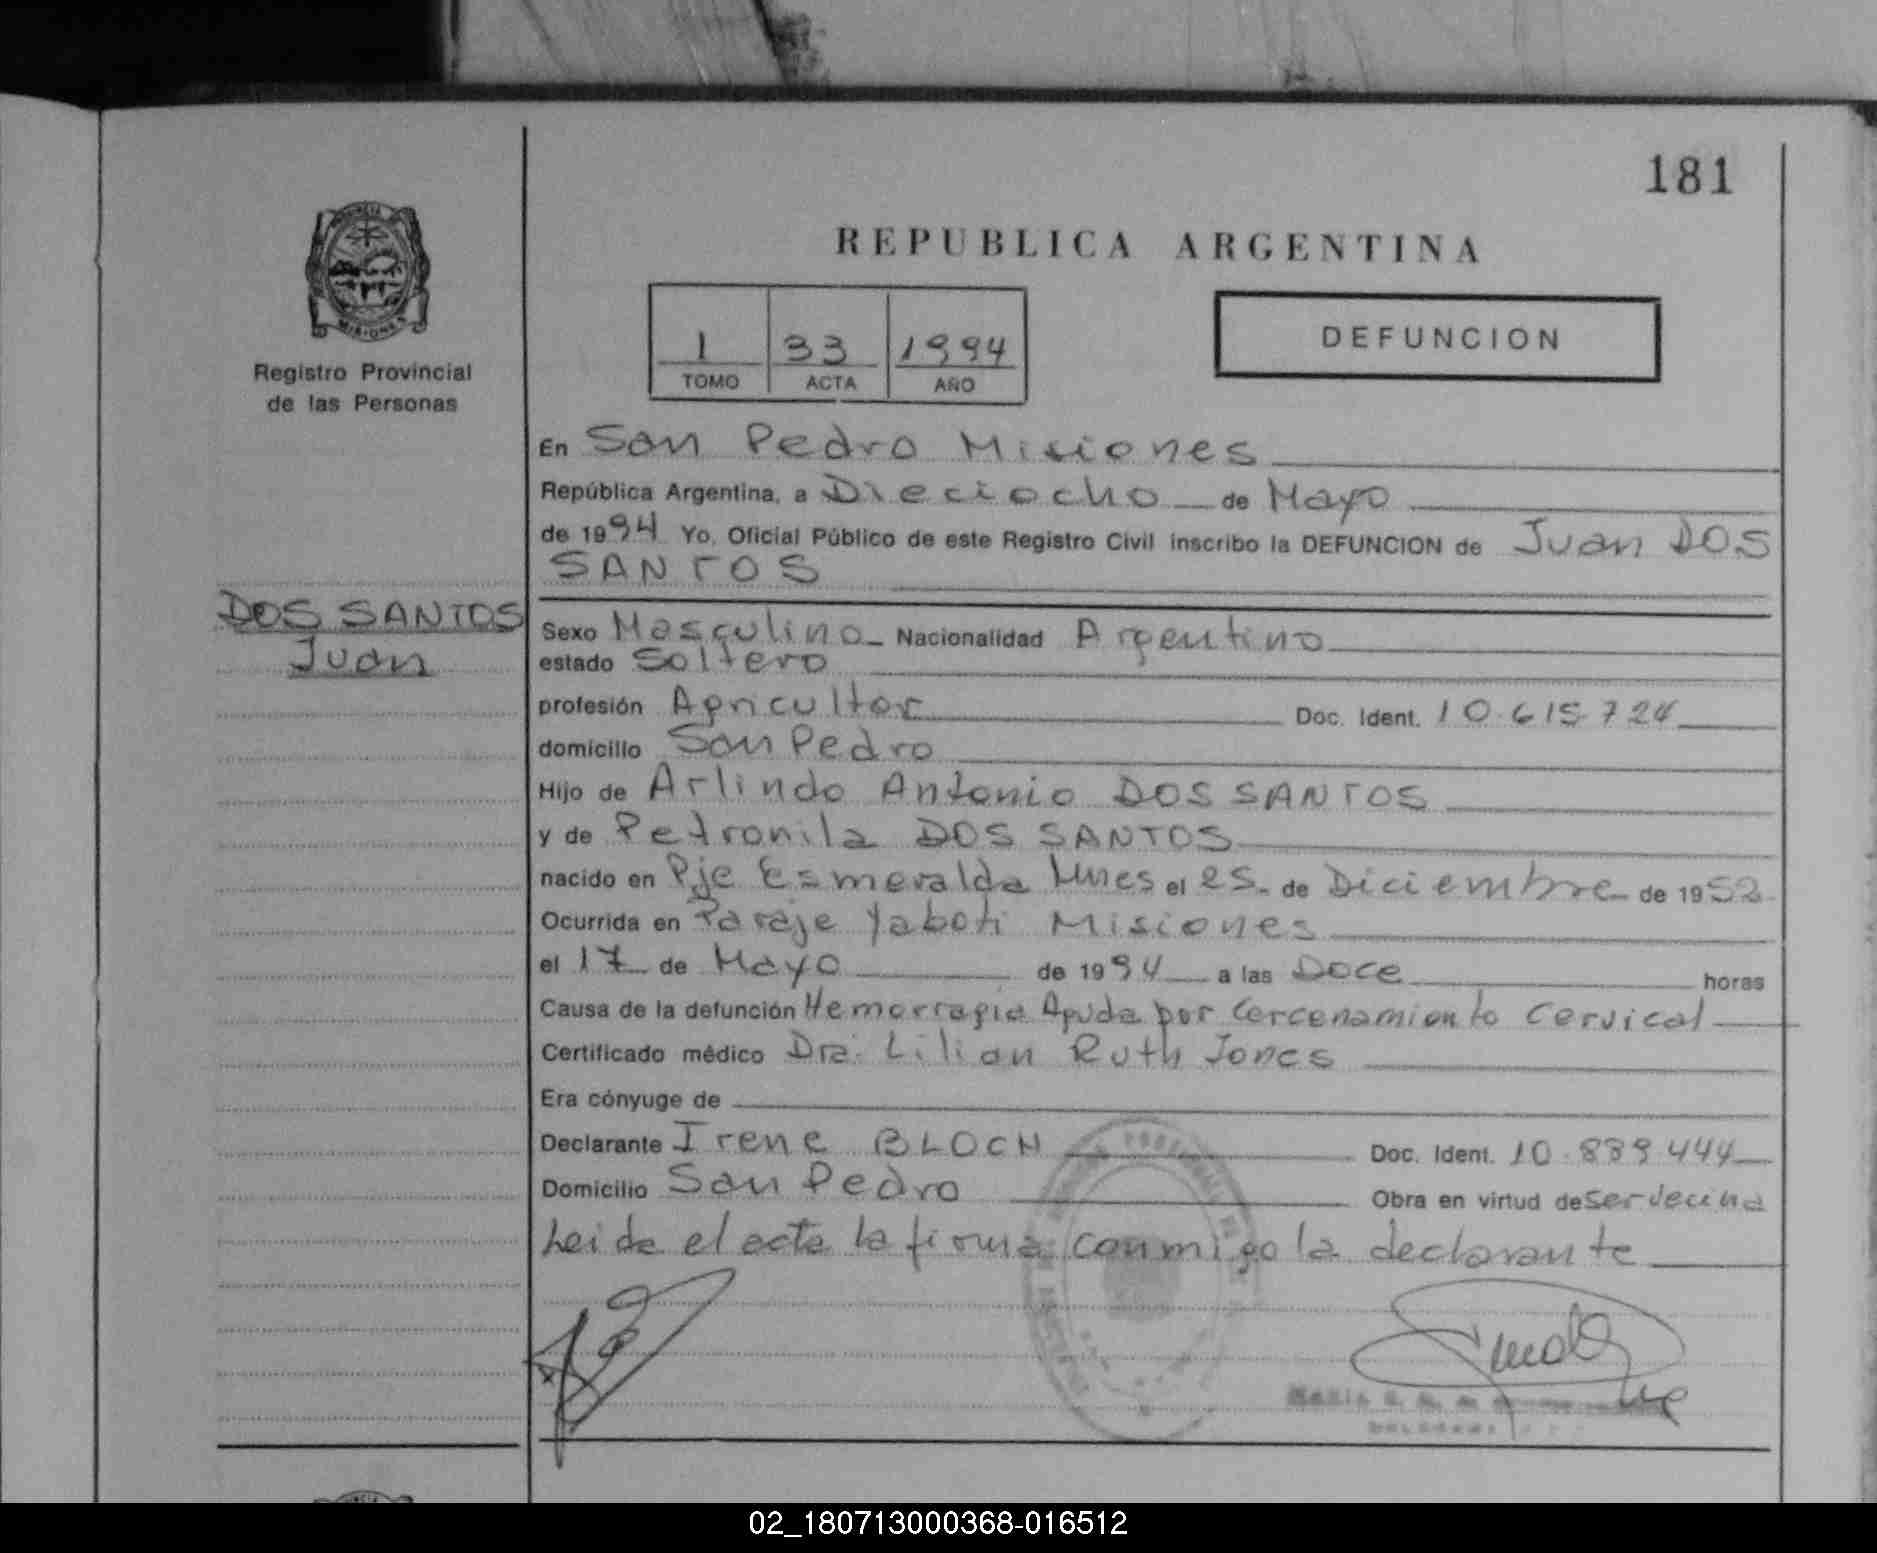 181
REPUBLICA ARGENTINA
MISIONES
Registro Provincial
de las Personas
1 33 1994
TOMO ACTA AÑO
DEFUNCION
En San Pedro Misiones
República Argentina, a Dieciocho de Mayo
de 1994 Yo, Oficial Público de este Registro Civil inscribo la DEFUNCION de Juan DOS
SANTOS
DOS SANTOS
Juan
Sexo Masculino Nacionalidad Argentino
estado Soltero
profesión Agricultor Doc. Ident. 10.615.724
domicilio San Pedro
Hijo de Arlindo Antonio DOS SANTOS
y de Petronila DOS SANTOS
nacido en Pje Esmeralda el 25 de Diciembre de 1952
Ocurrida en Paraje Yaboti Misiones
el 17 de Mayo de 1994 a las Doce horas
Causa de la defunción Hemorragia Aguda por Cercenamiento Cervical
Certificado médico Dra. Lilian Ruth Jones
Era cónyuge de
Declarante Irene BLOCH Doc. Ident. 10.889.444
Domicilio San Pedro Obra en virtud de ser vecina
Leida el acta la firma conmigo la declarante
02_180713000368-016512